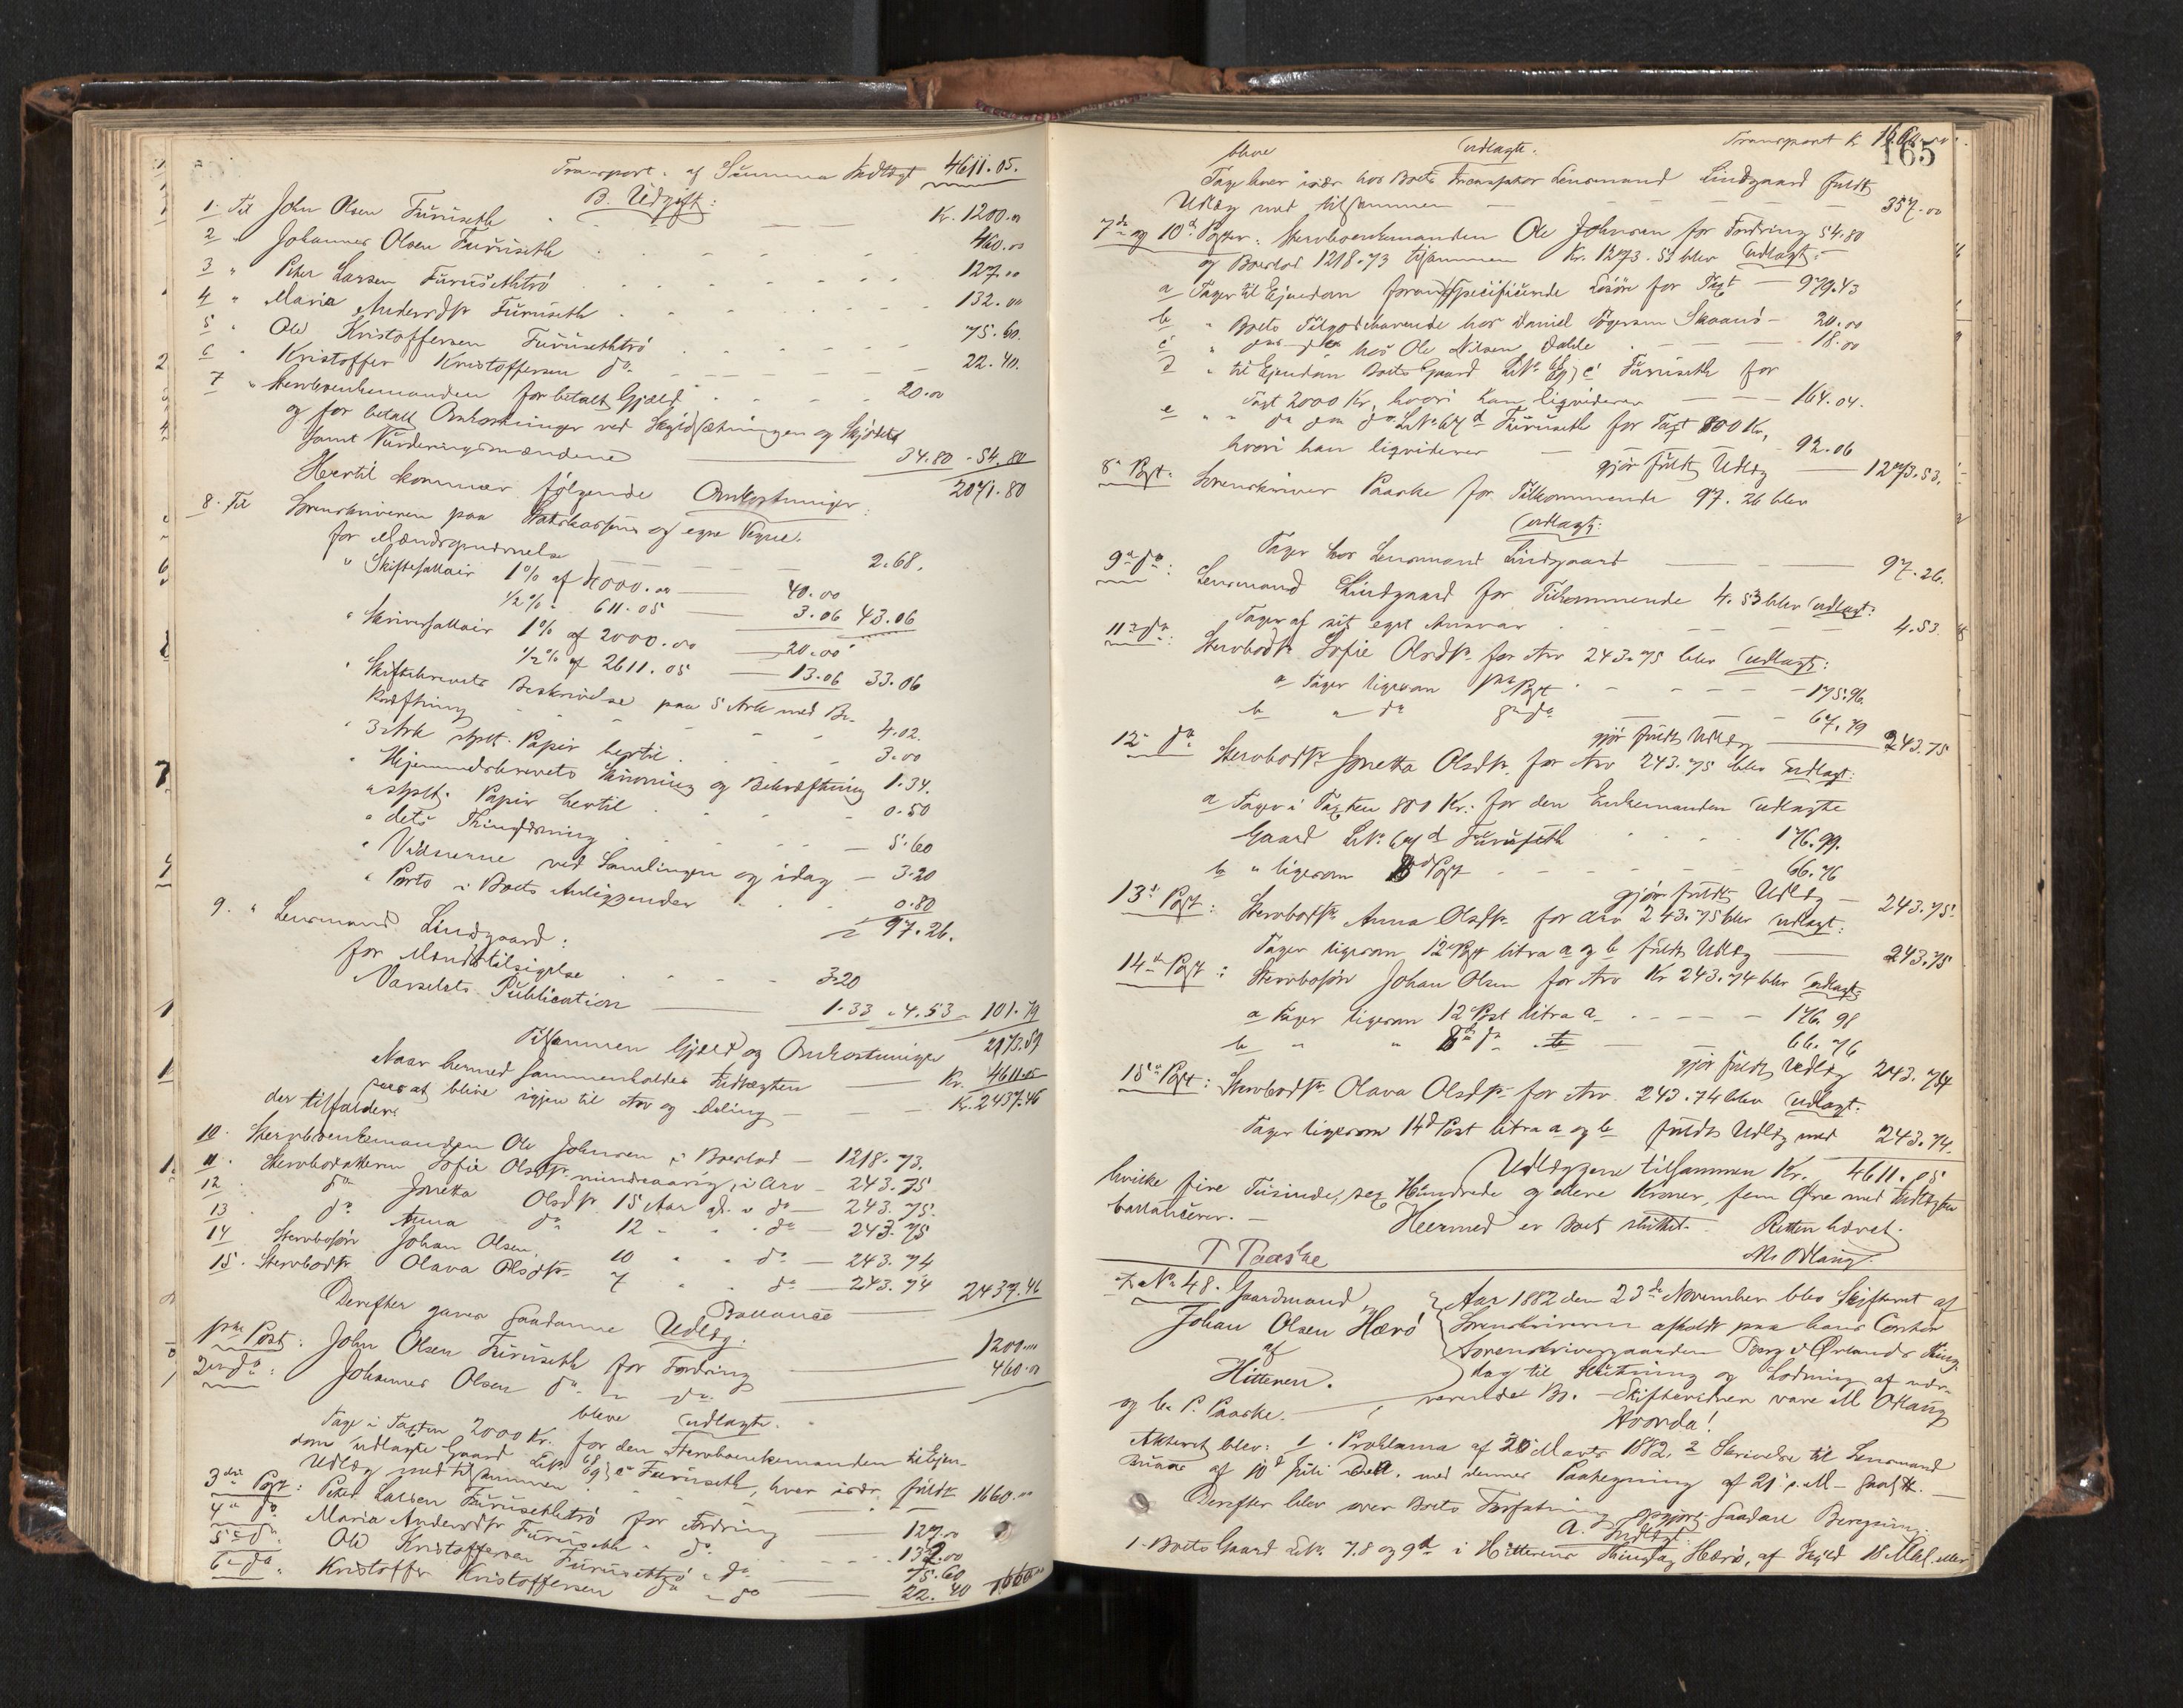 Transport. af Summa Indtægt 4611.05.
B. Udgift:
1. Til John Olsen Furuseth Kr. 1200.00
2 " Johannes Olsen Furuseth 460.00
3 " Peter Larsen Furusethtrø 127.00
4 " Maria Andersdtr Furuseth 132.00
5 " Ole Kristoffersen Furusethtrø 75.60.
6 " Kristoffer Kristoffersen do. 22.40.
7 " Stervboenkemanden for betalt Gjæld 20.00
og for betalt Omkostninger ved Skyldsætningen og Skjødet
samt Vurderingsmændene 34.80 - 54.80
2071.80
Hertil kommer følgende Omkostninger:
8. Til Sorenskriveren paa Statskassens og egne Vegne.
for Mændsopnævnelse 2.68.
" Skiftesallair 1% af 4000.00 40.00
1/2% " 611.05 3.06 43.06
" Skriversallair 1% af 2000.00 20.00
1/2% af 2611.05 13.06 33.06
" Skiftebrevets Beskrivelse paa 5 Ark med Be-
kræftning 4.02.
" 3 Ark stplt. Papir hertil 3.00
" Hjemmelsbrevets Skrivning og Bekræftning 1.34.
" stplt. Papir hertil 0.50
" dets Thinglæsning 5.60
" Vidnerne ved Samlingen og idag 3.20
" Porto i Boets Anliggender 0.80
97.26.
9. " Lensmand Lindgaard:
for Mændstilsigelse 3.20
" Varselets Publication 1.33 - 4.53 - 101.79
Tilsammen Gjæld og Omkostninger 2173.59
Naar hermed sammenholdes Indtægten Kr. 4611.05
sees at blive igjen til Arv og Deling Kr. 2437.46
der tilfalder:
10. Stervboenkemanden Ole Johnsen i Boeslod 1218.73.
11. Stervbodatteren Sofie Olsdtr. mindreaarig, i Arv 243.75
12. do Jonetta Olsdtr. 15 Aar gl. " do 243.75.
13. do Anna do 12 " " do 243.75
14. Stervbosøn Johan Olsen 10 " do 243.74
15. Stervbodtr. Olava Olsdtr. 7 " do 243.74 2437.46
Ballance
Derefter gaves saadanne Udlæg:
1ste Post: John Olsen Furuseth for Fordring 1200.00
2den do: Johannes Olsen do. " do. 460.00
bleve udlagte.
Tage i Taxten 2000 Kr. for den Stervboenkemanden til Ejen-
dom udlagte Gaard Furuseth, hver især fuldt
Udlæg med tilsammen 1660.00
3die Post: Peter Larsen Furusethtrø for Fordring 127.00
4de do. Maria Andersdtr Furuseth " do. 132.00
5te do. Ole Kristoffersen Furusethtrø " do 75.60
6te do " Kristoffer Kristoffersen do " do 22.40
165
bleve udlagte. Transport Kr.
Tage hver især hos Boets Incassator Lensmand Lindgaard fuldt
Udlæg med tilsammen 357.00
7de og 10de Poster: Stervboenkemanden Ole Johnsen for Fordring 54.80
og Boeslod 1218.73 tilsammen Kr. 1273.53 blev udlagt:
a Tager til Ejendom foranspecificerede Løsøre for Taxt 979.43
b " Boets Tilgodehavende hos Daniel 20.00
c " do do hos Ole Nilsen Dahle 18.00
d " til Ejendom Boets Gaard Furuseth for
Taxt 2000 Kr, hvori han liqviderer 164.04.
e " " do do do LNo. 67d Furuseth for Taxt 800 Kr,
hvori han liqviderer 92.06
gjør fuldt Udlæg 1273.53.
8de Post: Sorenskriver Paaske for Tilkommende 97.26 blev
udlagt:
Tager hos Lensmand Lindgaard 97.26.
9de do: Lensmand Lindgaard for Tilkommende 4.53 blev udlagt:
Tager af sit eget Ansvar 4.53.
11te do: Stervbodtr. Sofie Olsdtr. for Arv 243.75 blev udlagt:
a Tager ligesom 1ste Post 175.96.
b " do 8de do. 67.79
gjør fuldt Udlæg 243.75
12te do Stervbodtr. Jonetta Olsdtr. for Arv 243.75 blev udlagt:
a Tager i Taxten 800 Kr. for den Enkemanden udlagte
Gaard LNo. 67d Furuseth 176.99.
b " ligesom 8de Post 66.76
gjør fuldt Udlæg 243.75.
13de Post: Stervbodtr. Anna Olsdtr. for Arv 243.75 blev udlagt:
Tager ligesom 12te Post litra a og b fuldt Udlæg 243.75
14de Post: Stervbosøn Johan Olsen for Arv Kr 243.74 blev udlagt:
a Tager ligesom 12te Post litra a 176.98
b " " 8de do 66.76
gjør fuldt Udlæg 243.74
15de Post: Stervbodtr. Olava Olsdtr. for Arv 243.74 blev udlagt.
Tager ligesom 14de Post litra a og b fuldt Udlæg med 243.74.
Udlæggene tilsammen Kr. 4611.05
hvilke fire Tusinde, sex Hundrede og elleve Kroner, fem Øre med Indtægten
ballancerer. — Hermed er Boet sluttet. Retten hævet.
P Paaske
No 48. Gaardmand
Johan Olsen Hærø
af
Hitteren.
Aar 1882 den 23de November blev Skifteret af
Sorenskriveren afholdt paa hans Contor
Sorenskrivergaarden
dag til Slutning og Lodning af nær-
værende Bo. - Skiftevidner vare M Ødlaug
og L. P. Paaske.
Akteret blev: 1. Proklama af 20 Marts 1882, 2 Skrivelse til Lensmand
af 10d Juli med dennes Paategning af 21 s. M.
Derefter blev over Boets Forfatning opgjort saadan Beregning:
A. Indtægt:
1. Boets Gaard LNo. 7.8 og 9d i Hitterens Thinglag Hærø, af Skyld 18 Mkl. eller